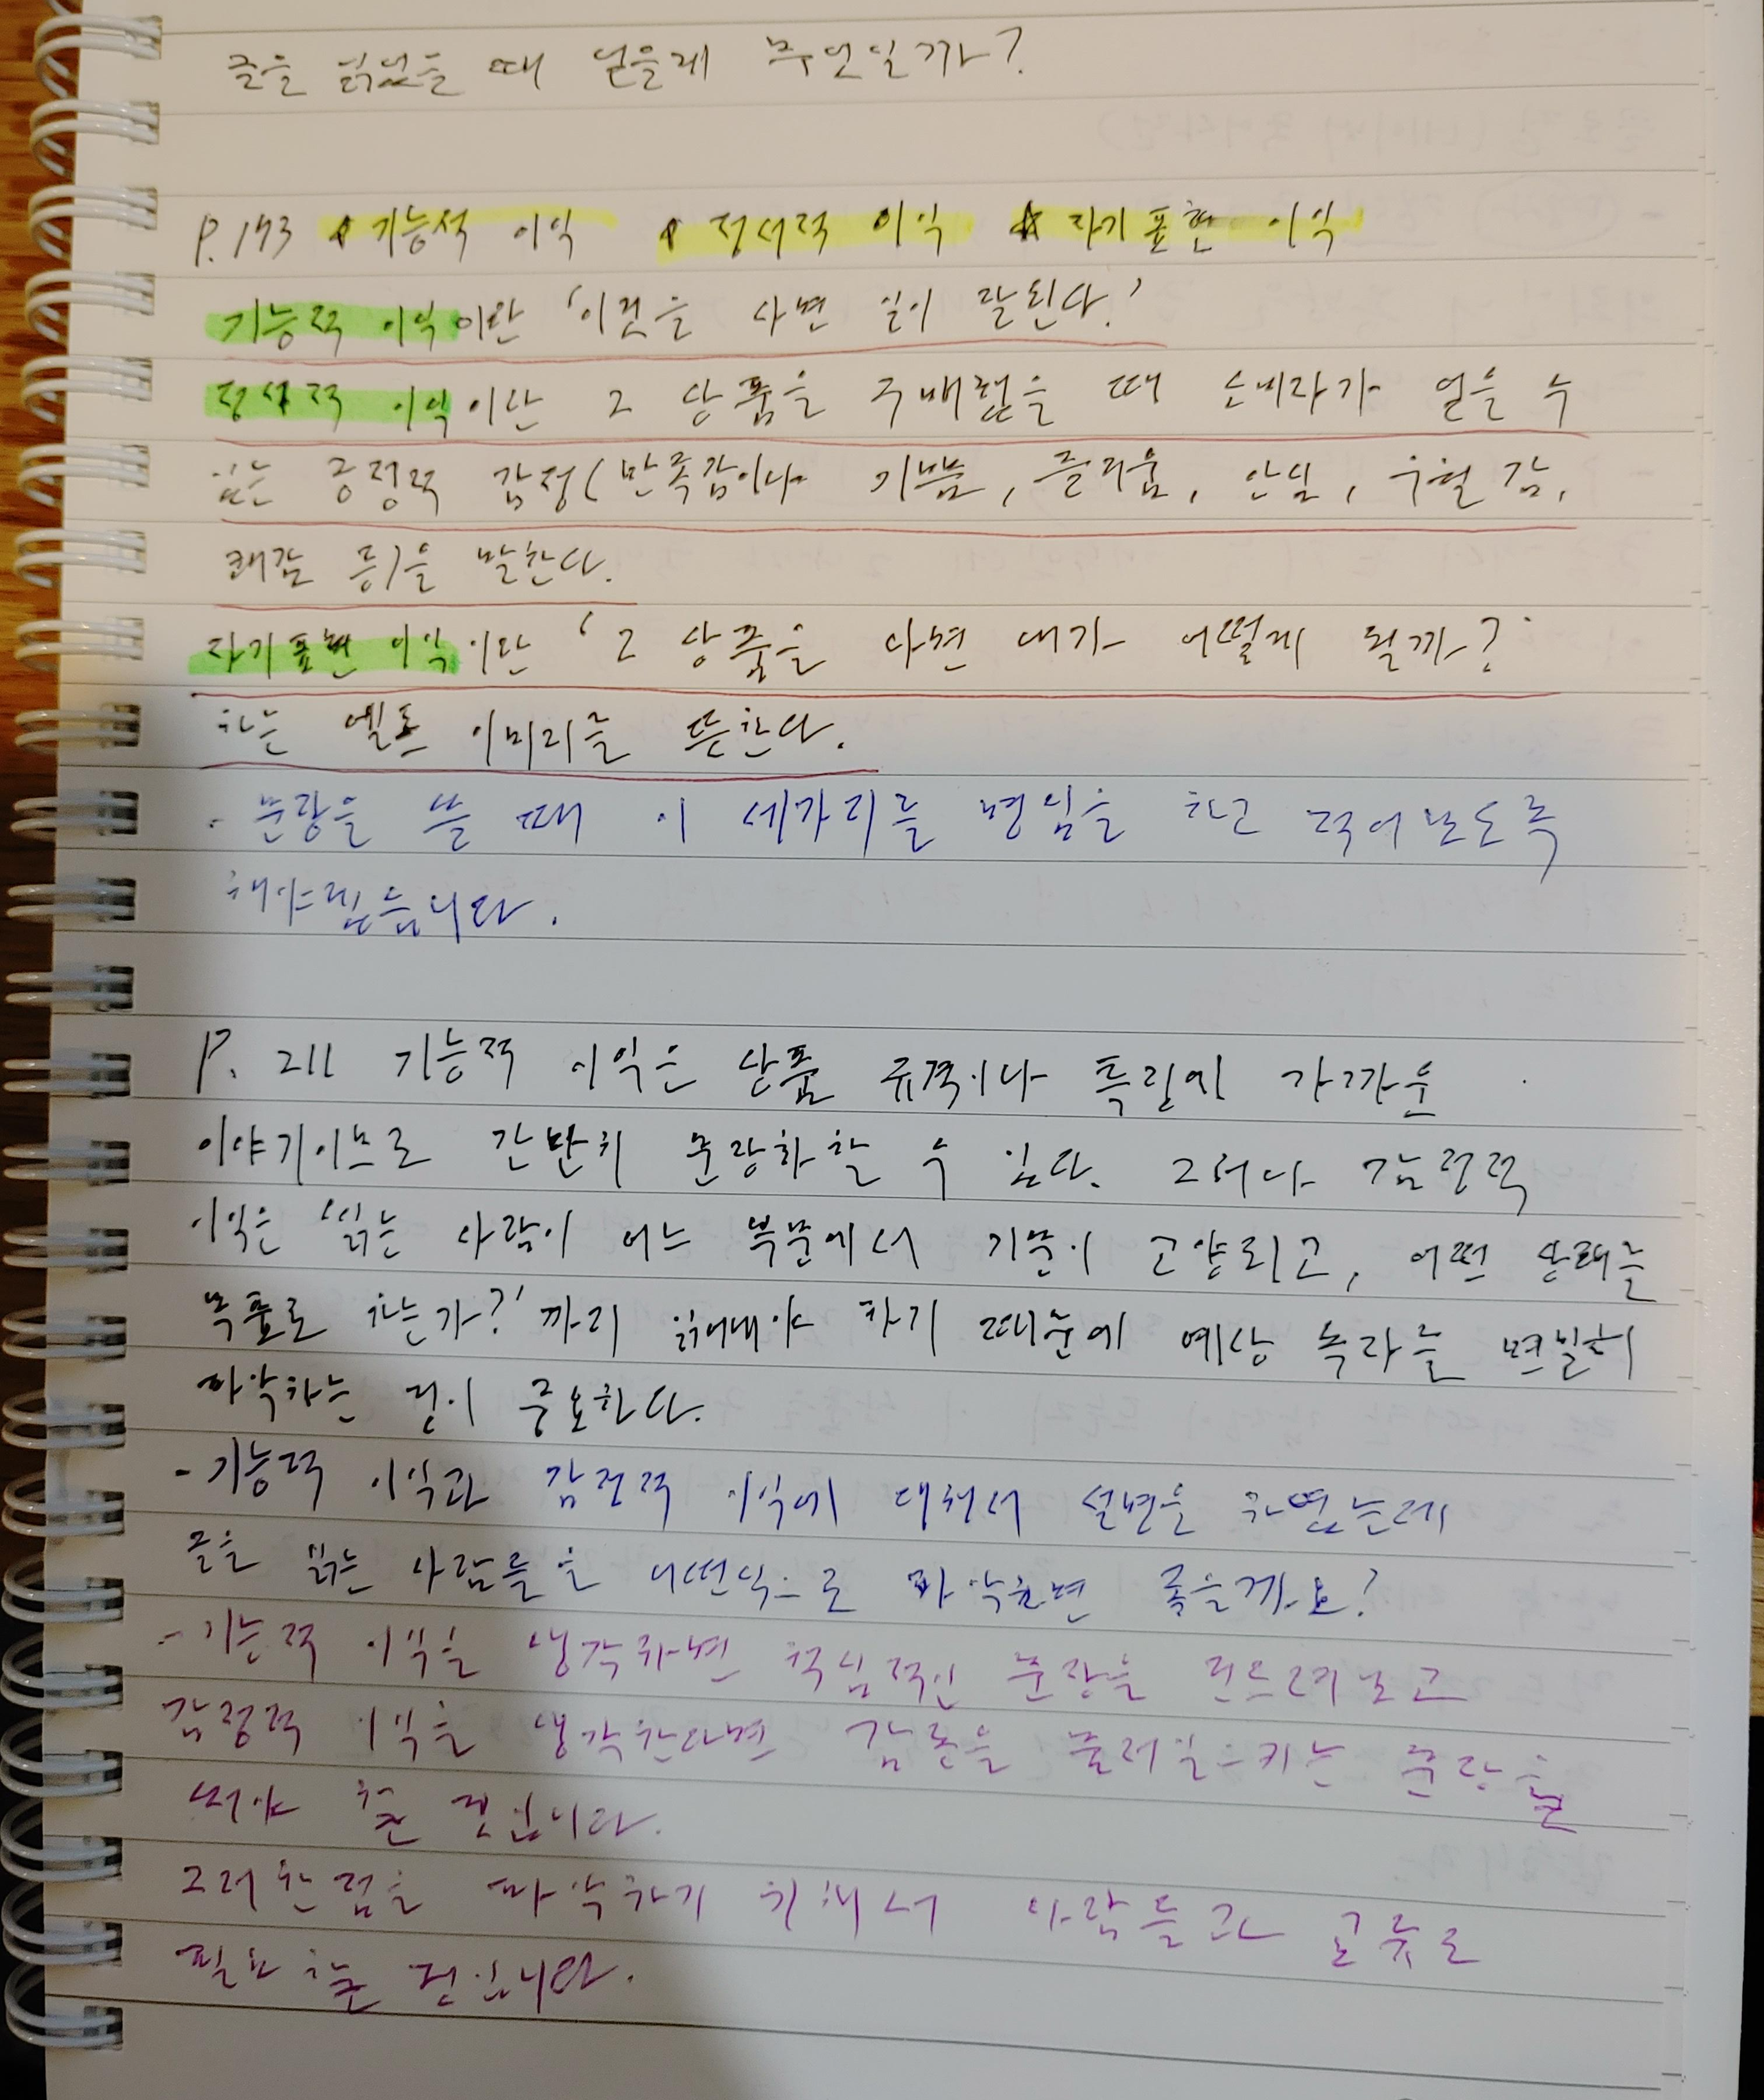 글을 읽었을 때 얻을게 무엇일까?
P.173 기능적 이익 정서적 이익 자기표현 이익
기능적 이익이란 '이것을 사면 일이 잘된다.'
정서적 이익이란 그 상품을 구매했을 때 소비자가 얻을 수
있는 긍정적 감정(만족감이나 기쁨, 즐거움, 안심, 우월감,
쾌감 등)을 말한다.
자기표현 이익이란 '그 상품을 사면 내가 어떻게 될까?'
하는 셀프 이미지를 뜻한다.
- 문장을 쓸 때 이 세가지를 명심을 하고 적어보도록
해야겠습니다.
P. 211 기능적 이익은 상품 규격이나 특질에 가까운
이야기이므로 간단히 문장화할 수 있다. 그러나 감정적
이익은 '읽는 사람이 어느 부분에서 기분이 고양되고, 어떤 상태를
목표로 하는가?'까지 읽어내야 하기 때문에 예상 독자를 면밀히
파악하는 것이 중요하다.
- 기능적 이익과 감정적 이익에 대해서 설명을 하였는데
글을 읽는 사람들을 어떤식으로 파악하면 좋을까요?
- 기능적 이익을 생각하면 핵심적인 문장을 써드려야고
감정적 이익을 생각한다면 감동을 불러일으키는 문장을
써야 할 것입니다.
그러한 점을 파악하기 위해서 사람들과 교류도
필요할 것입니다.